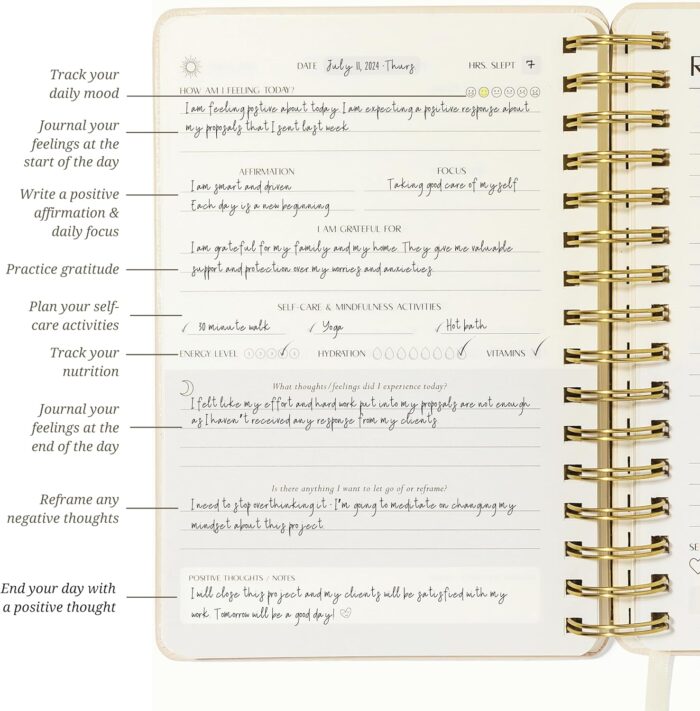 DATE July 11, 2024 · Thurs. HRS. SLEPT 7
Track your
daily mood
HOW AM I FEELING TODAY?
I am feeling postive about today. I am expecting a positive response about
my proposals that I sent last week.
Journal your
feelings at the
start of the day
AFFIRMATION
I am smart and driven
Each day is a new beginning
FOCUS
Taking good care of myself
Write a positive
affirmation &
daily focus
I AM GRATEFUL FOR
I am grateful for my family and my home. They give me valuable
support and protection over my worries and anxieties.
Practice gratitude
SELF-CARE & MINDFULNESS ACTIVITIES
✓ 30 minute walk ✓ Yoga ✓ Hot bath
Plan your self-
care activities
ENERGY LEVEL HYDRATION VITAMINS ✓
Track your
nutrition
What thoughts/feelings did I experience today?
I felt like my effort and hard work put into my proposals are not enough
as I haven't received any response from my clients.
Journal your
feelings at the
end of the day
Is there anything I want to let go of or reframe?
I need to stop overthinking it - I'm going to meditate on changing my
mindset about this project.
Reframe any
negative thoughts
POSITIVE THOUGHTS / NOTES
I will close this project and my clients will be satisfied with my
work. Tomorrow will be a good day!
End your day with
a positive thought
SE